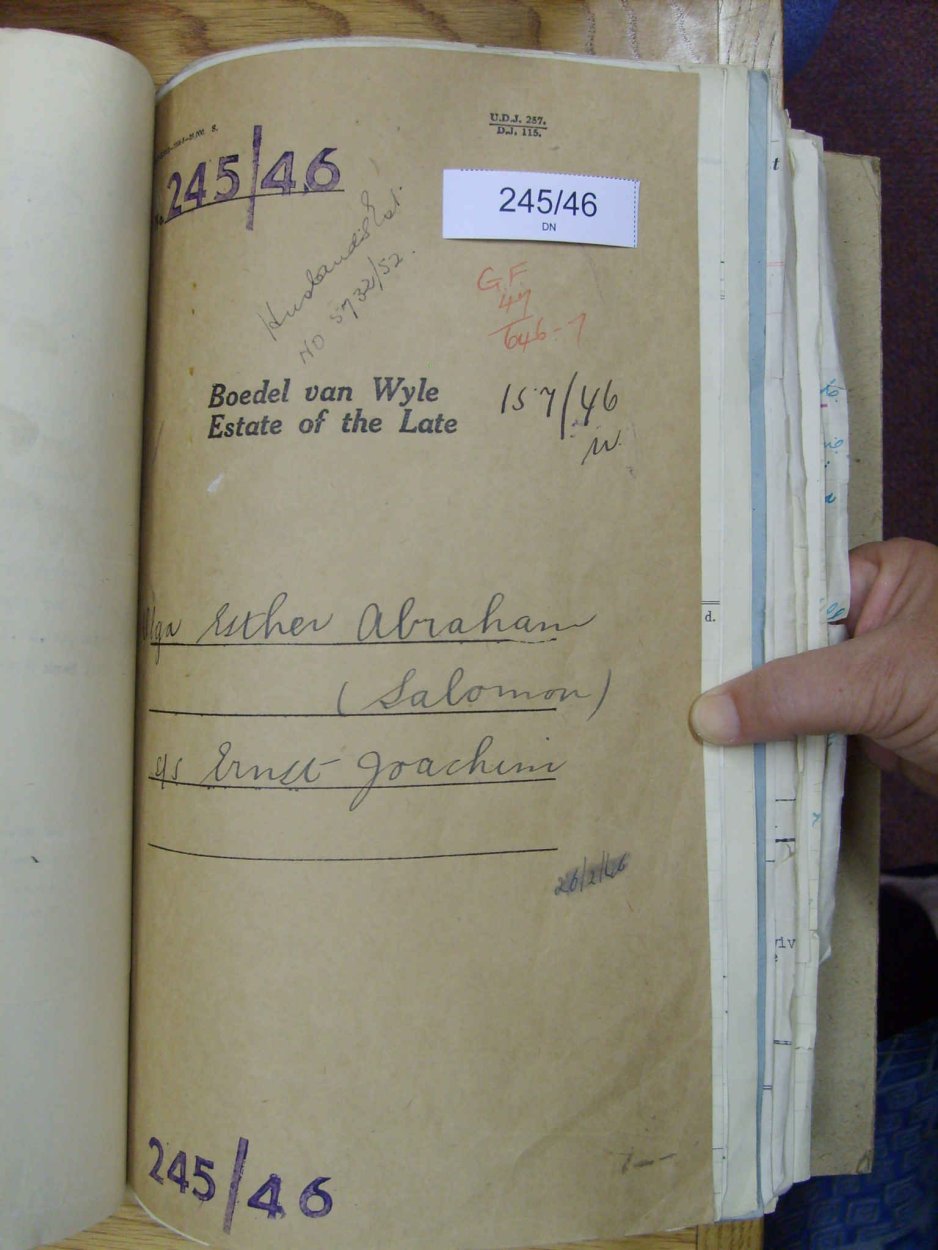 U.D.J. 257.
D.J. 115.
245/46
245/46
DN
Husband's Est.
NO 5732/52.
G.F
47
646-7
Boedel van Wyle
Estate of the Late
157/46
Olga Esther Abraham
(Salomon)
s/s Ernst Joachim
26/2/46
245/46
d.